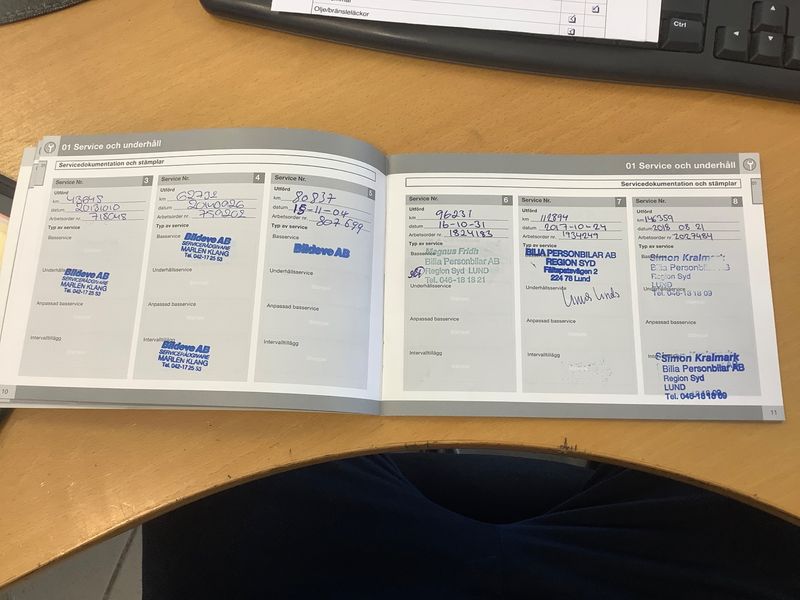 Olje/bränsleläckor
Ctrl
01 Service och underhåll
Servicedokumentation och stämplar
Service Nr. 3
Utförd
km 43045
datum 20131010
Arbetsorder nr. 718048
Typ av service
Basservice
Underhållsservice
Bildeve AB
SERVICERÅDGIVARE
MARLEN KLANG
Tel. 042-17 25 53
Anpassad basservice
Intervalltillägg
10
Service Nr. 4
Utförd
km
datum 20140926
Arbetsorder nr. 759202
Typ av service
Basservice
Bildeve AB
SERVICERÅDGIVARE
MARLEN KLANG
Tel. 042-17 25 53
Underhållsservice
Anpassad basservice
Intervalltillägg
Bildeve AB
SERVICERÅDGIVARE
MARLEN KLANG
Tel. 042-17 25 53
Service Nr. 5
Utförd
km 80837
datum 15-11-04
Arbetsorder nr. 807599
Typ av service
Basservice
Bildeve AB
Underhållsservice
Anpassad basservice
Intervalltillägg
01 Service och underhåll
Servicedokumentation och stämplar
Service Nr. 6
Utförd
km 96231
datum 16-10-31
Arbetsorder nr. 1824183
Typ av service
Basservice
Magnus Fridh
Bilia Personbilar AB
Region Syd LUND
Tel. 046-18 18 21
Underhållsservice
Anpassad basservice
Intervalltillägg
Service Nr. 7
Utförd
km 112894
datum 2017-10-24
Arbetsorder nr. 1934249
Typ av service
BILIA PERSONBILAR AB
REGION SYD
Fältspatsvägen 2
224 78 Lund
Underhållsservice
Anpassad basservice
Intervalltillägg
Service Nr. 8
Utförd
km 146359
datum 2018 08 21
Arbetsorder nr. 2027484
Typ av service
Simon Kralmark
Bilia Personbil
Region Syd
LUND
Tel. 046-18 18 09
Underhållsservice
Anpassad basservice
Intervalltillägg
Simon Kralmark
Bilia Personbilar AB
Region Syd
LUND
Tel. 046-18 18 09
11